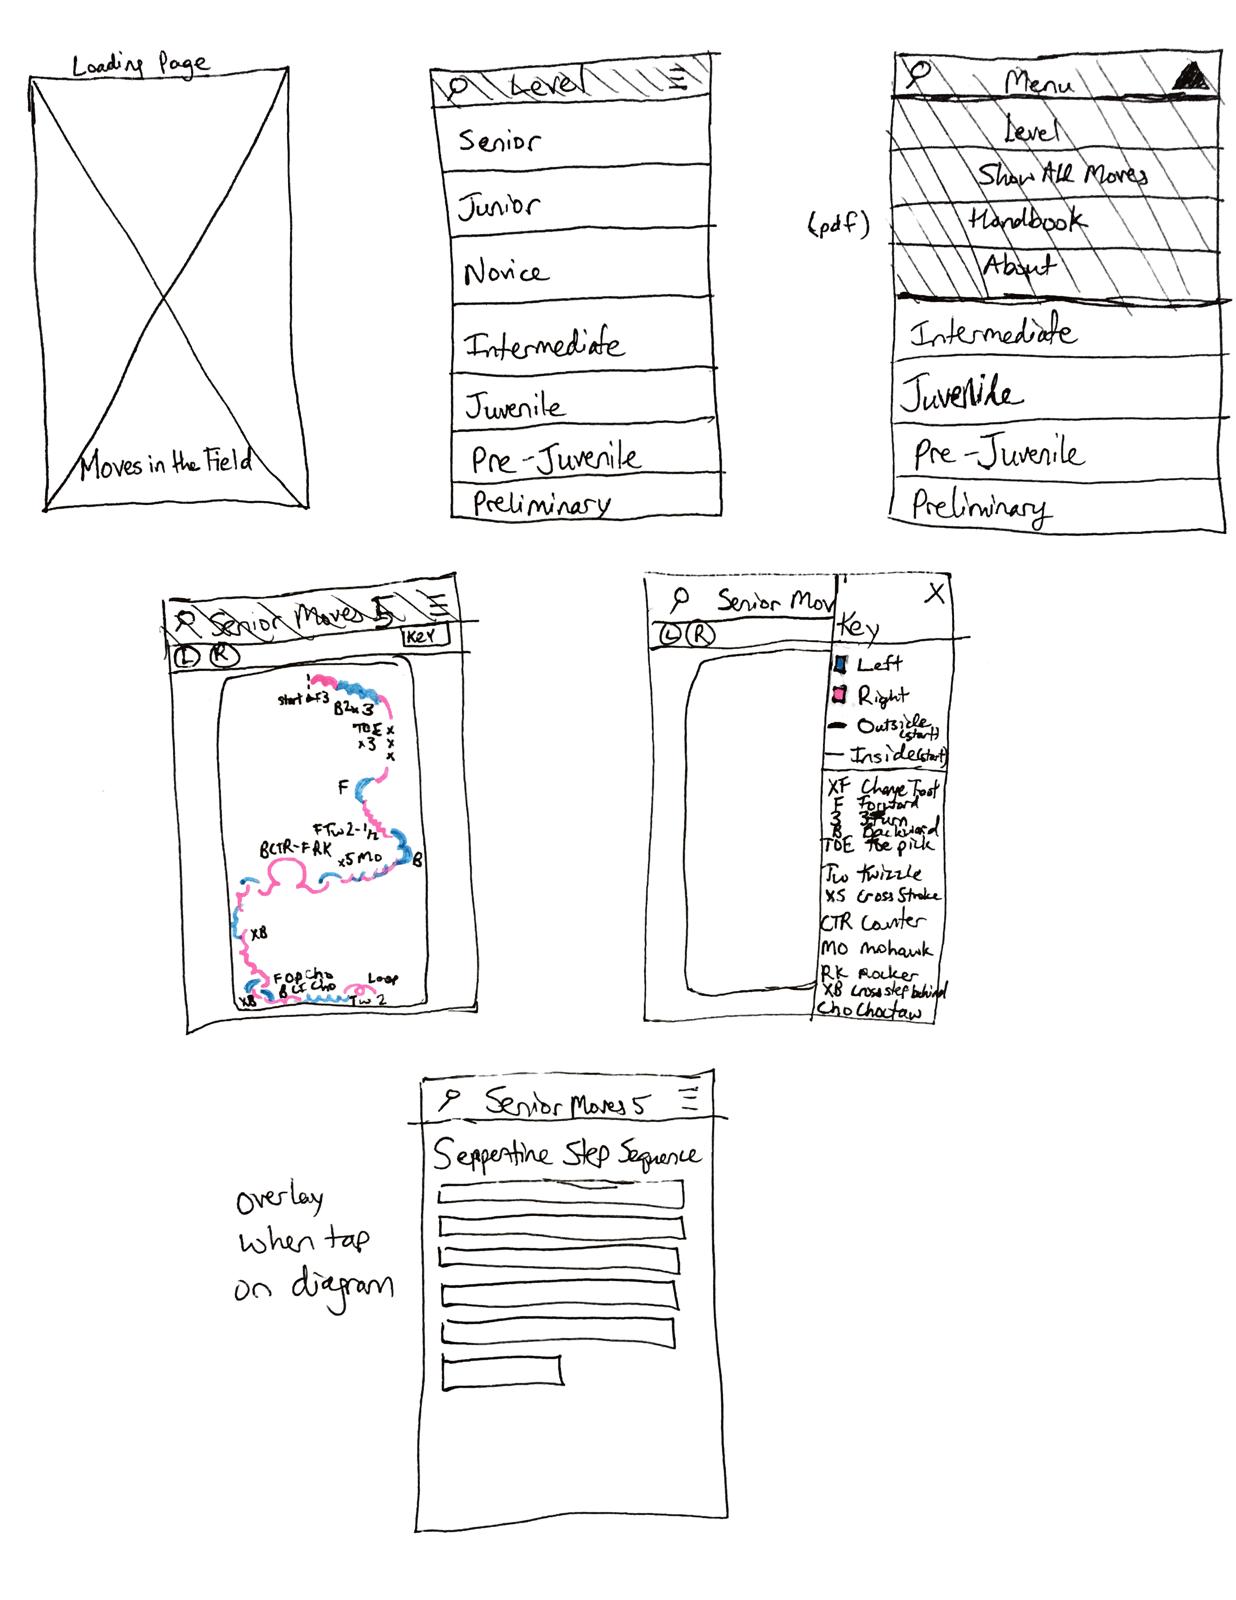 Loading Page
Moves in the Field
Level
Senior
Junior
Novice
Intermediate
Juvenile
Pre-Juvenile
Preliminary
Menu
Level
Show All Moves
(pdf) Handbook
About
Intermediate
Juvenile
Pre-Juvenile
Preliminary
Senior Moves 5
L R
KEY
start F3
B2x3
TOE x
x3 x
x
F
FTw2-1/2
BCTR-FRK
x5 Mo
B
XB
F Op Cho
B Cho
Loop
XB
Tw 2
Senior Mov
X
L R
Key
Left
Right
Outside
(start)
Inside (start)
XF Change Foot
F Forward
3 3turn
B Backward
TOE Toe pick
Tw twizzle
XS Cross Stroke
CTR Counter
MO mohawk
RK Rocker
XB cross step behind
Cho Choctaw
Senior Moves 5
Seppertine Step Sequence
overlay
when tap
on diagram